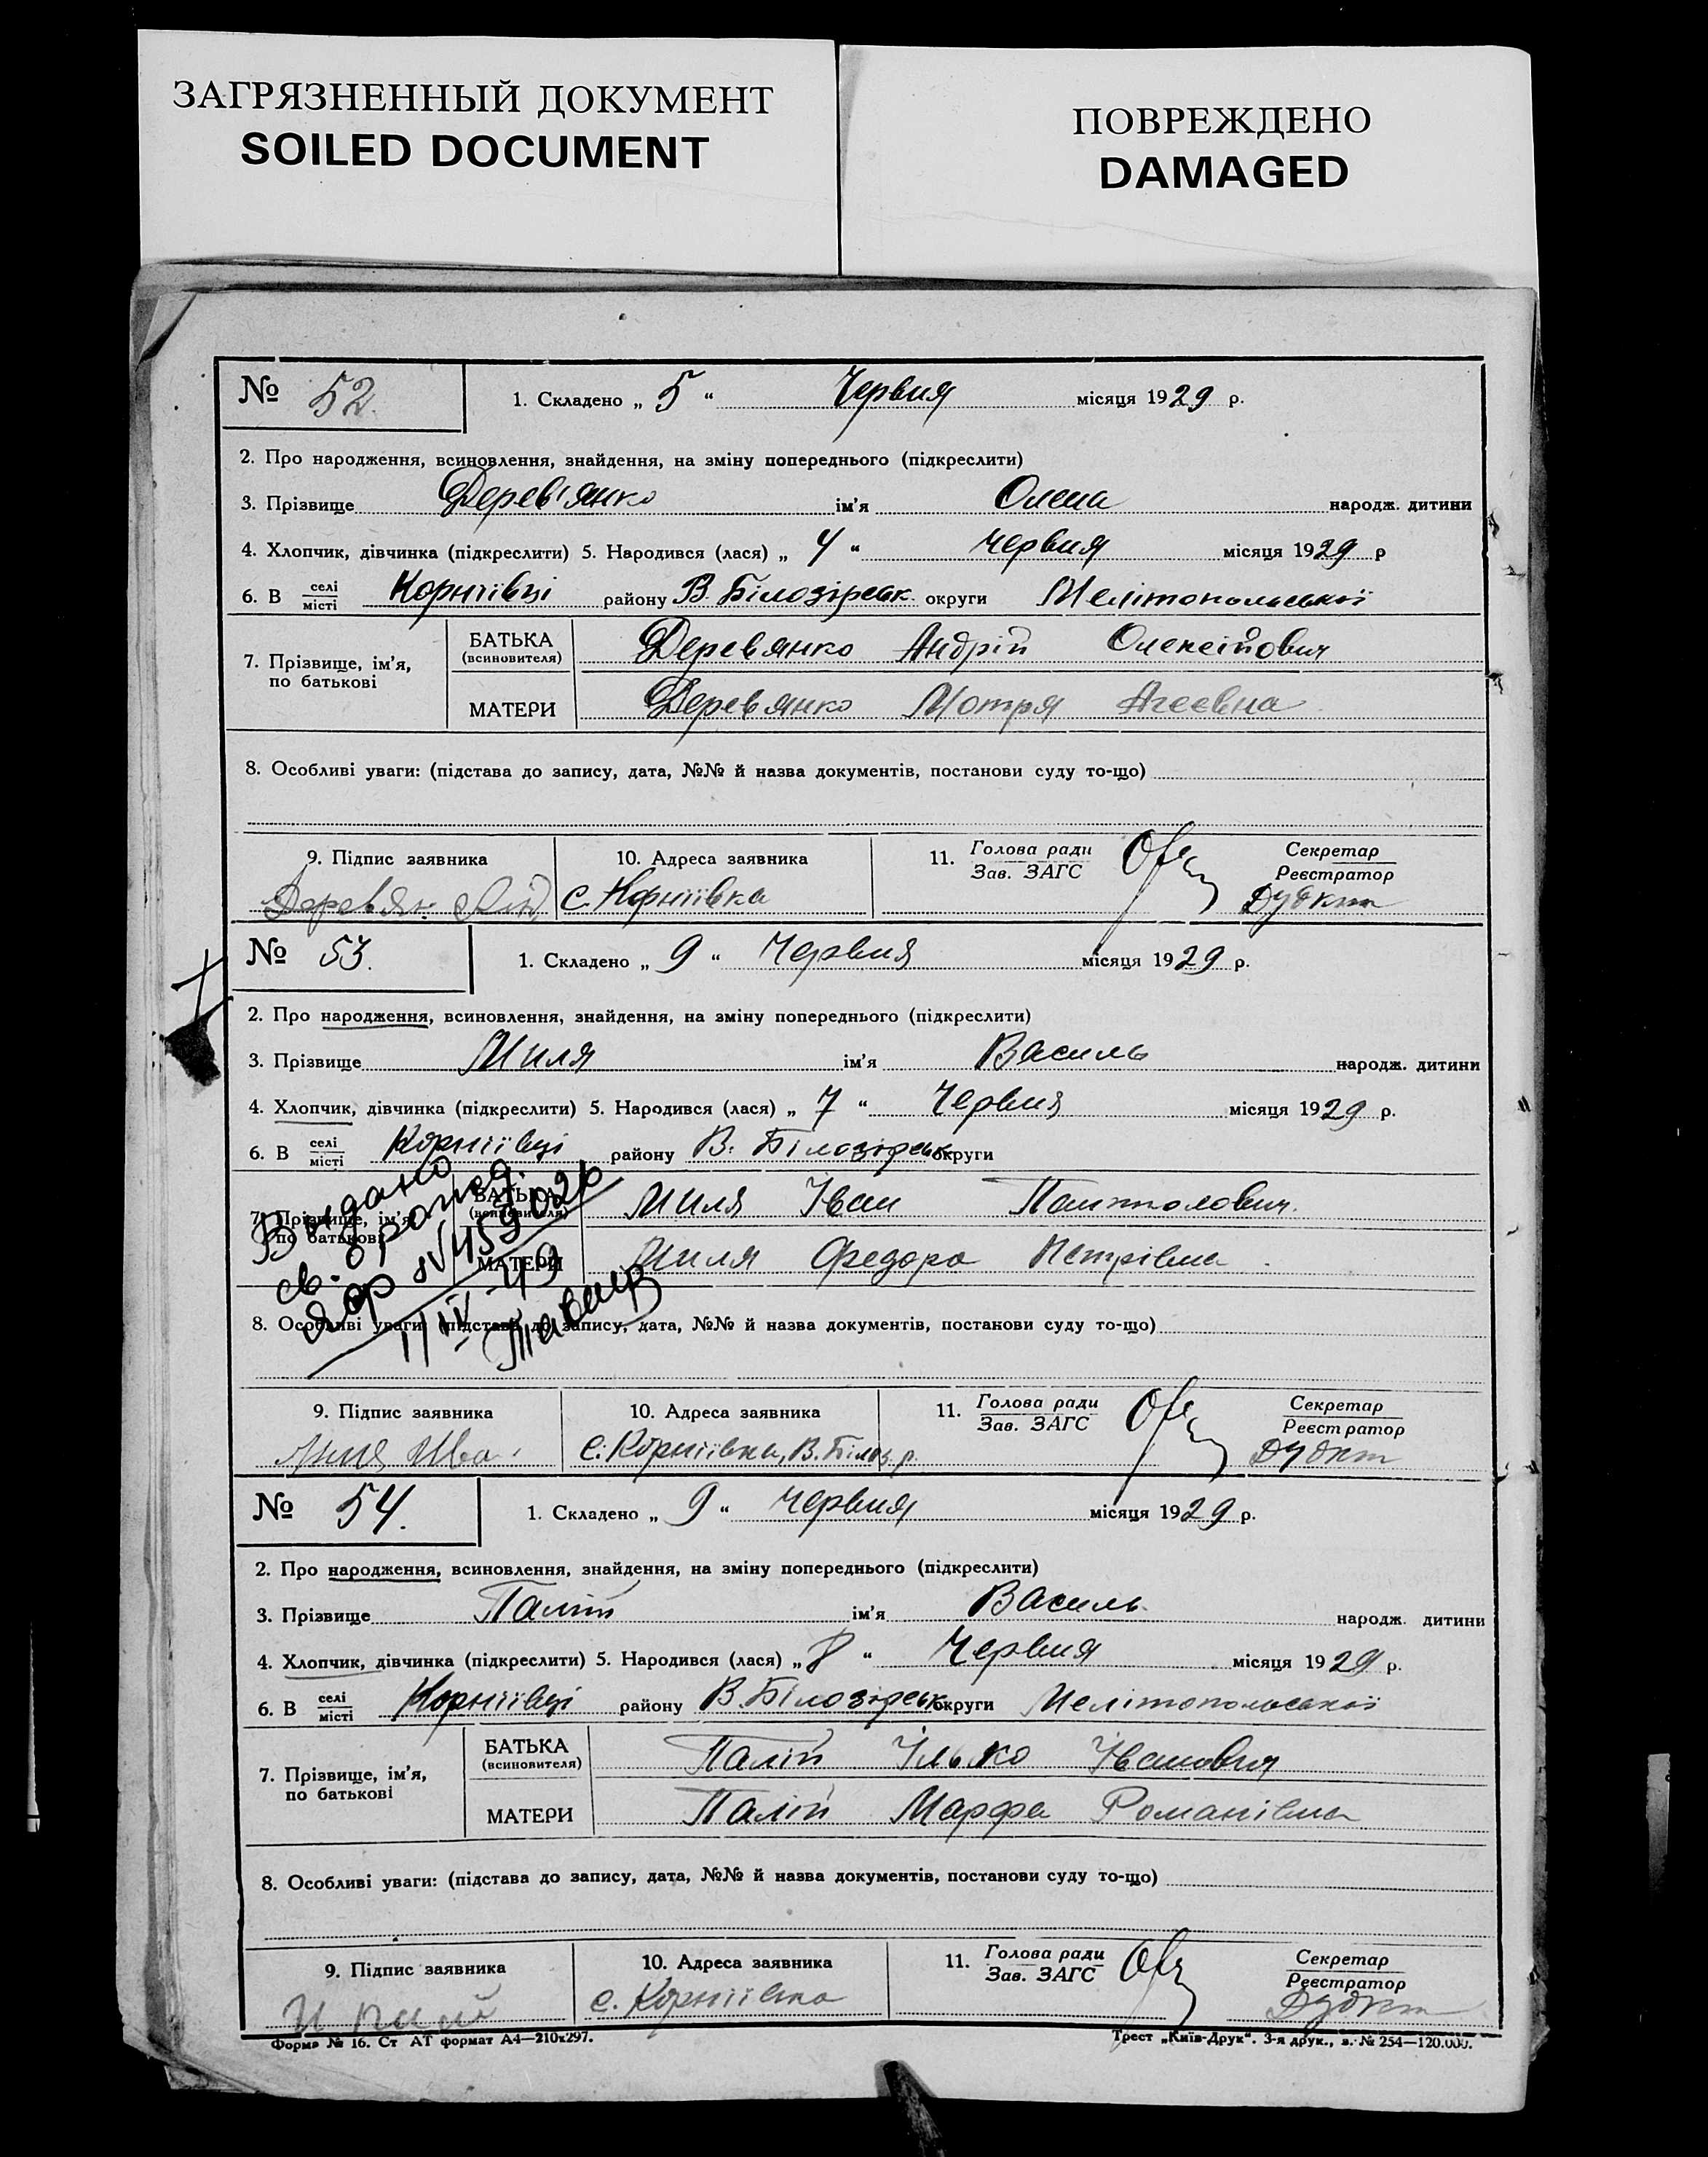 ЗАГРЯЗНЕННЫЙ ДОКУМЕНТ
SOILED DOCUMENT
ПОВРЕЖДЕНО
DAMAGED
№ 52. 1. Складено „ 5 “ Червня місяця 1929 р.
2. Про народження, всиновлення, знайдення, на зміну попереднього (підкреслити)
3. Прізвище Дерев'янко ім'я Олена народж. дитини
4. Хлопчик, дівчинка (підкреслити) 5. Народився (лася) „ 4 “ червня місяця 1929 р
6. В селі місті Корніївці району В. Білозірськ. округи Мелітопольської
7. Прізвище, ім'я, по батькові
БАТЬКА (всиновителя) Деревянко Андрій Олексійович
МАТЕРИ Деревянко Мотря Агеєвна
8. Особливі уваги: (підстава до запису, дата, №№ й назва документів, постанови суду то-що)
9. Підпис заявника 10. Адреса заявника 11. Голова ради Зав. ЗАГС Секретар Реєстратор
с. Корніївка
№ 53. 1. Складено „ 9 “ Червня місяця 1929 р.
2. Про народження, всиновлення, знайдення, на зміну попереднього (підкреслити)
3. Прізвище Миля ім'я Василь народж. дитини
4. Хлопчик, дівчинка (підкреслити) 5. Народився (лася) „ 7 “ Червня місяця 1929 р.
6. В селі місті Корніївці району В. Білозірськ округи
7. Прізвище, ім'я, по батькові
БАТЬКА (всиновителя) Миля Іван
МАТЕРИ Миля Федора Петрівна
Выдано
св. о рожд.
№ 459026
11/IV-49
8. Особливі уваги: (підстава до запису, дата, №№ й назва документів, постанови суду то-що)
9. Підпис заявника 10. Адреса заявника 11. Голова ради Зав. ЗАГС Секретар Реєстратор
Миля Ива. с. Корніївка, В. Білоз. р.
№ 54. 1. Складено „ 9 “ червня місяця 1929 р.
2. Про народження, всиновлення, знайдення, на зміну попереднього (підкреслити)
3. Прізвище Палій ім'я Василь народж. дитини
4. Хлопчик, дівчинка (підкреслити) 5. Народився (лася) „ 8 “ Червня місяця 1929 р.
6. В селі місті Корніївці району В. Білозірськ округи Мелітопольської
7. Прізвище, ім'я, по батькові
БАТЬКА (всиновителя) Палій Ілько Іванович
МАТЕРИ Палій Марфа Романівна
8. Особливі уваги: (підстава до запису, дата, №№ й назва документів, постанови суду то-що)
9. Підпис заявника 10. Адреса заявника 11. Голова ради Зав. ЗАГС Секретар Реєстратор
с. Корніївка
Форма № 16. Ст АТ формат А4—210х297. Трест „Київ-Друк“. 3-я друк., з. № 254—120.000.